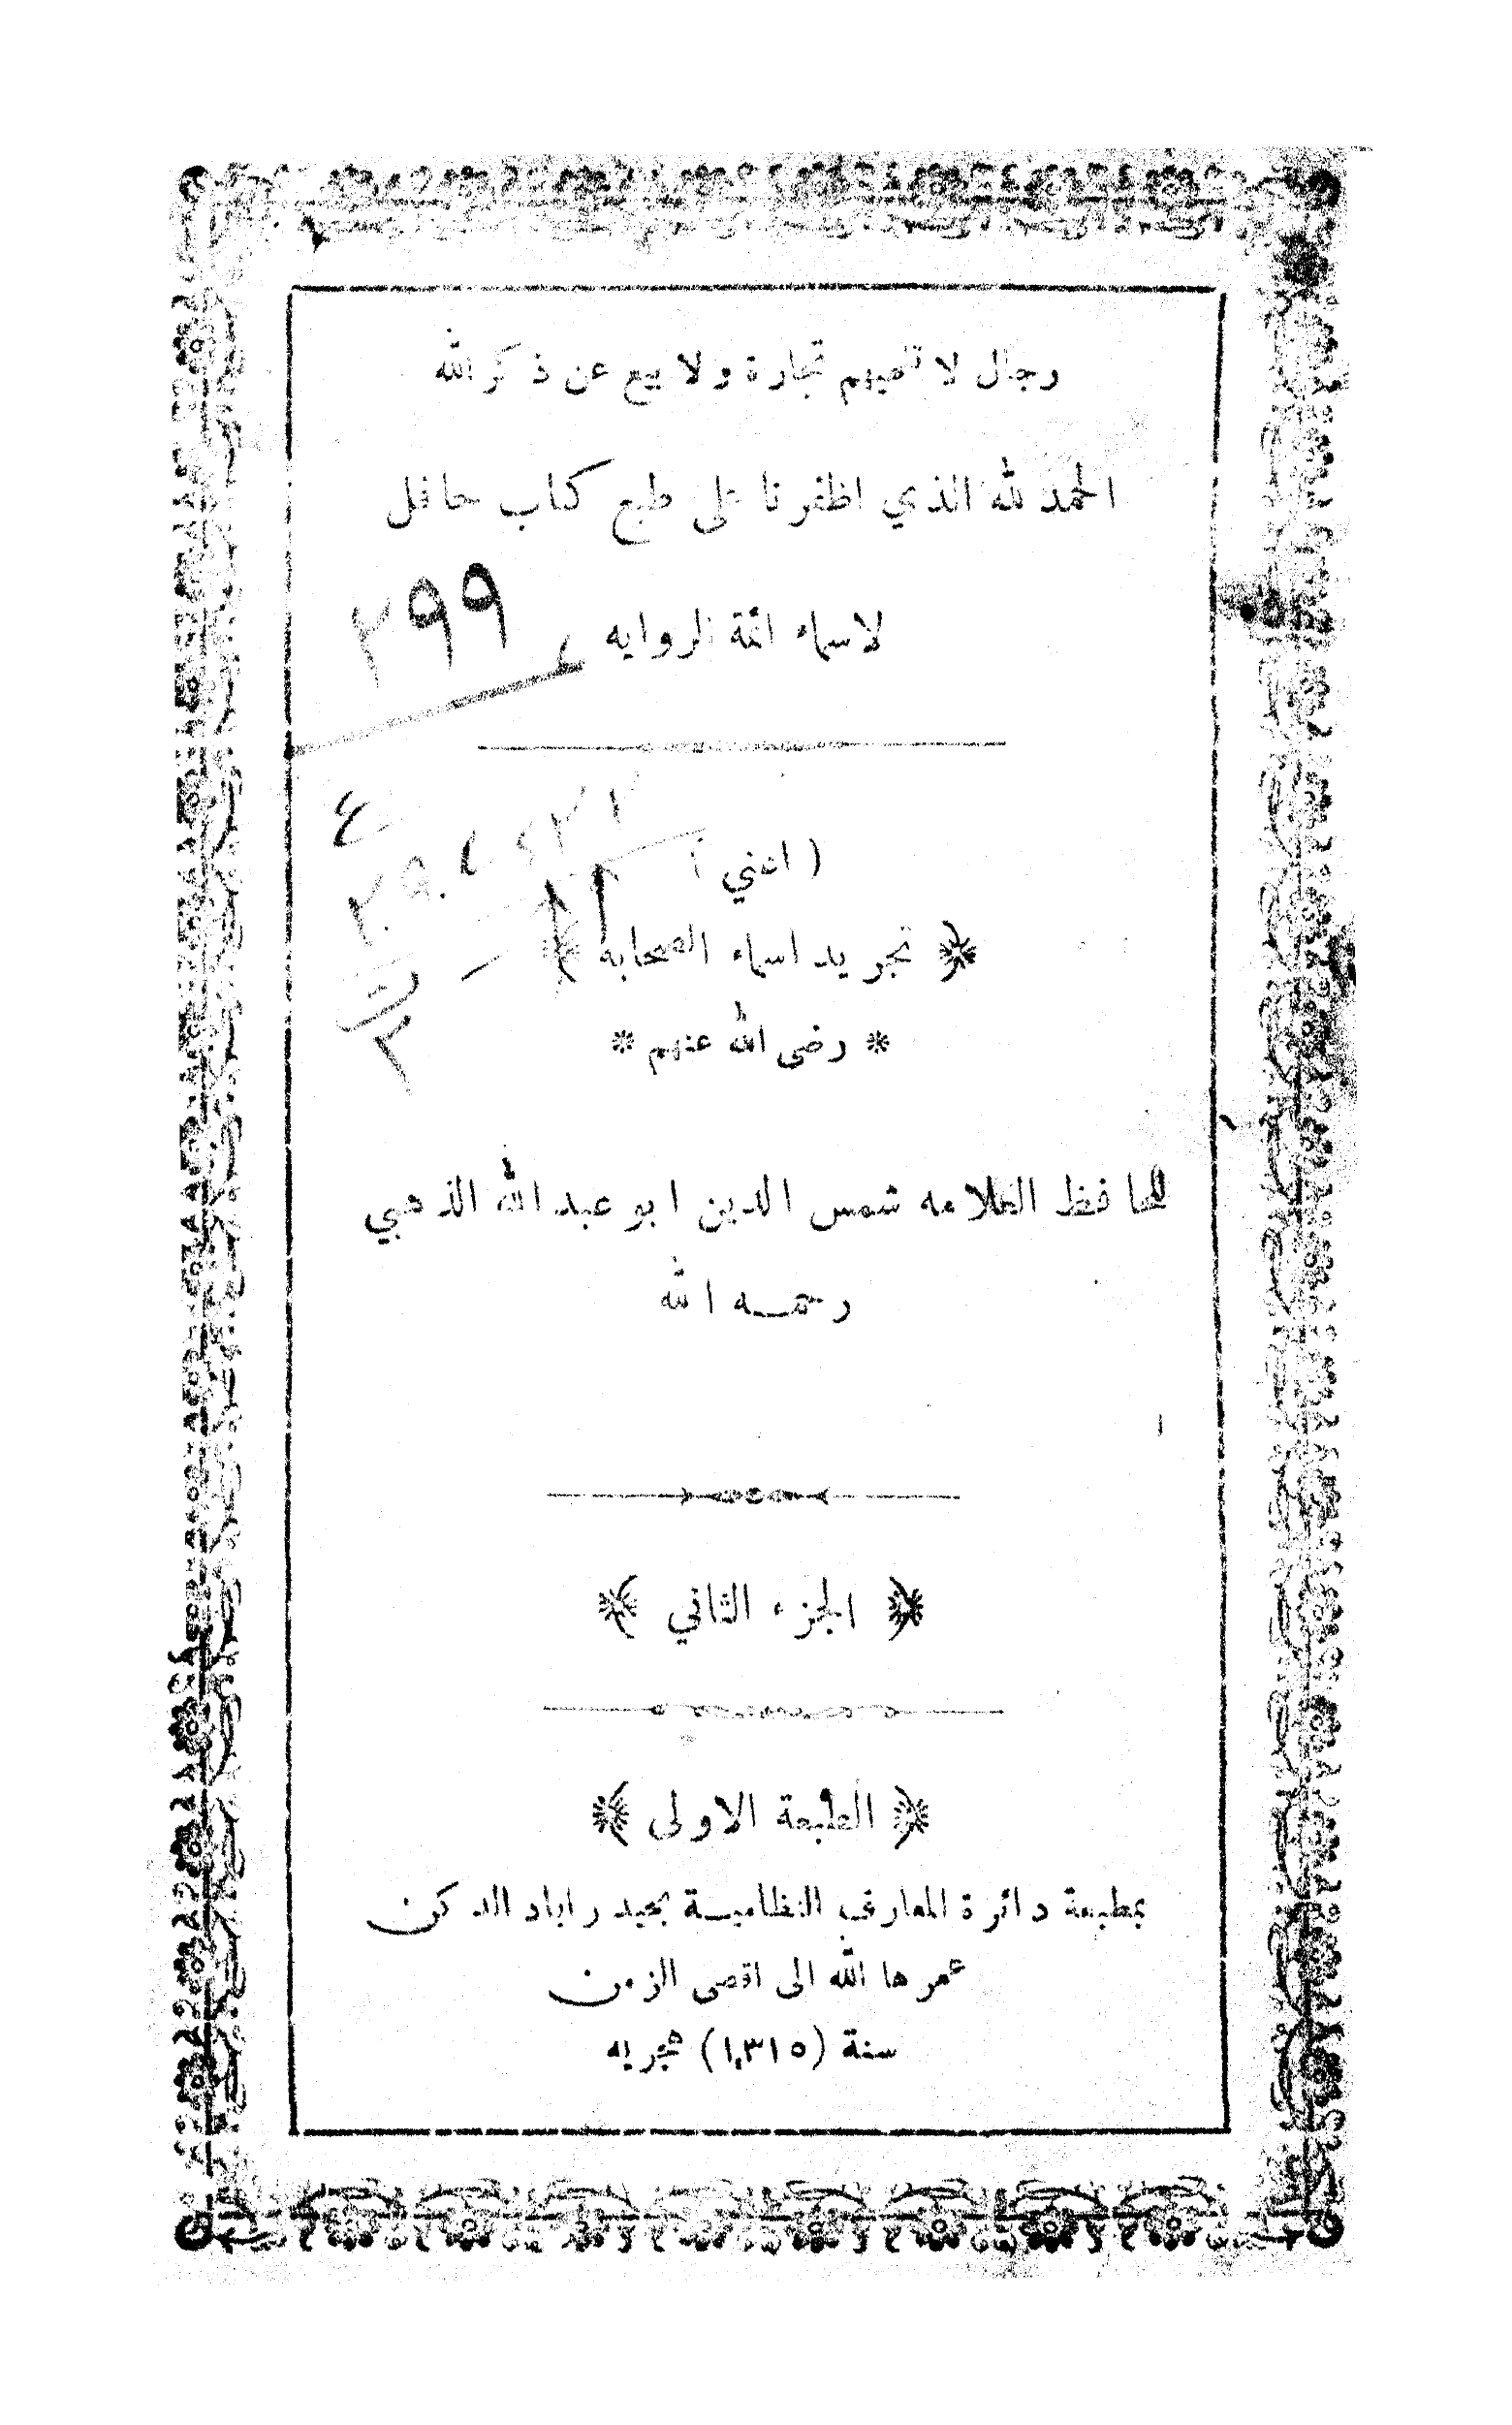 رجال لا تلهيهم تجارة ولا بيع عن ذكر الله
الحمد لله الذي اظفرنا على طبع كتاب حافل
لاسماء ائمة الروايه
٢٩٩
( اعني )
﴿ تجريد اسماء الصحابه ﴾
* رضى الله عنهم *
للحافظ العلامه شمس الدين ابو عبد الله الذهبي
رحمه الله
﴿ الجزء الثاني ﴾
﴿ الطبعة الاولى ﴾
بمطبعة دائرة المعارف النظامية بحيدر اباد الدكن
عمرها الله الى اقصى الزمن
سنة (١٣١٥) هجريه